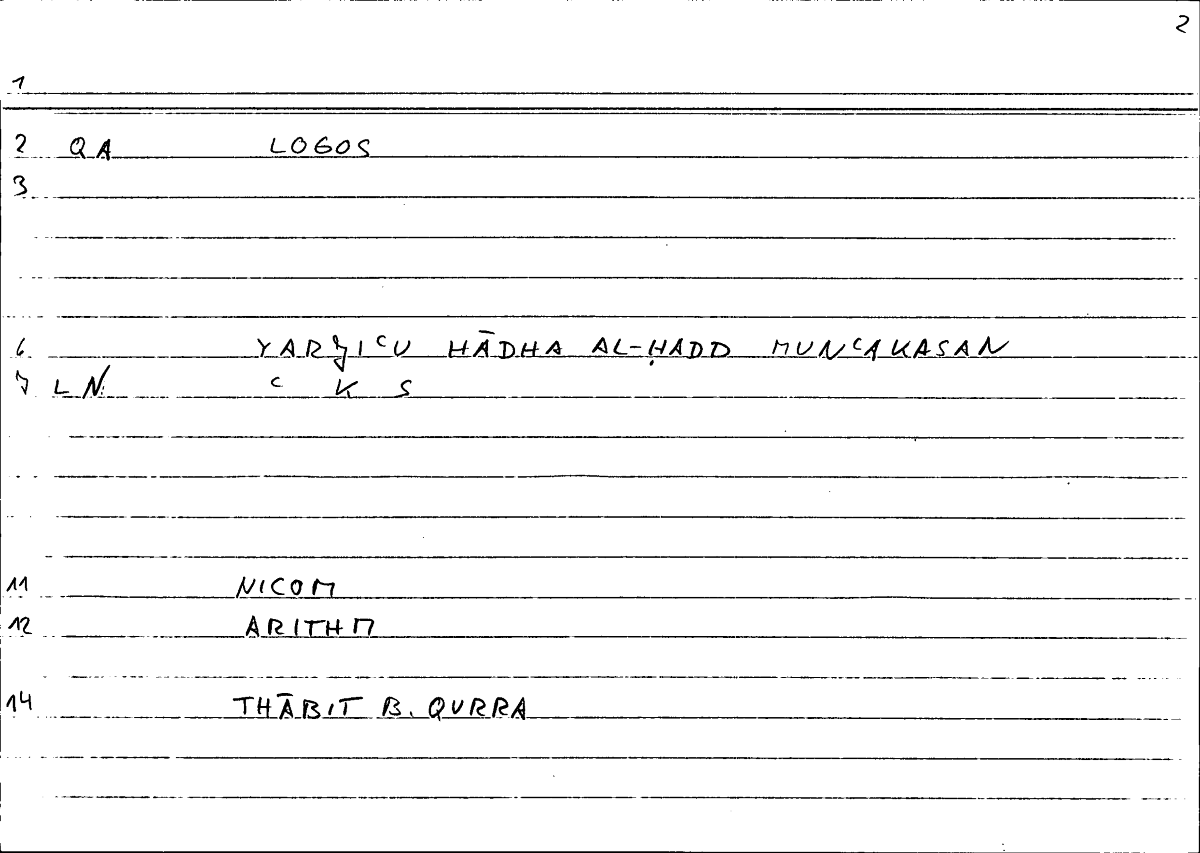 2
1
2 QA LOGOS
3
6 YARJIᶜU HĀDHA AL-ḤADD MUNᶜAKASAN
7 LN. ᶜ K S
11 NICOM
12 ARITHM
14 THĀBIT B. QURRA